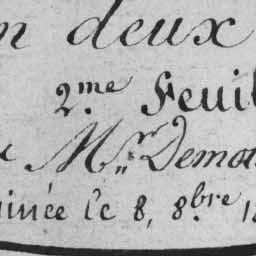 n deux
2.me Feuil
Mr. Demo
inée le 8, 8.bre 1